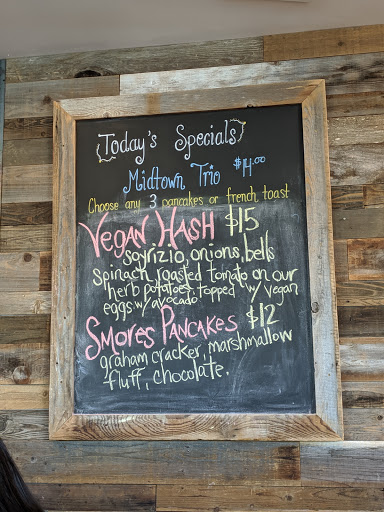 Today's Specials
Midtown Trio $14.00
Choose any 3 pancakes or french toast
VEGAN HASH $15
soyrizio, onions, bells
spinach, roasted tomato on our
herb potatoes topped w/ vegan
eggs w/ avocado
SMORES PANCAKES $12
graham cracker, marshmallow
fluff, chocolate.